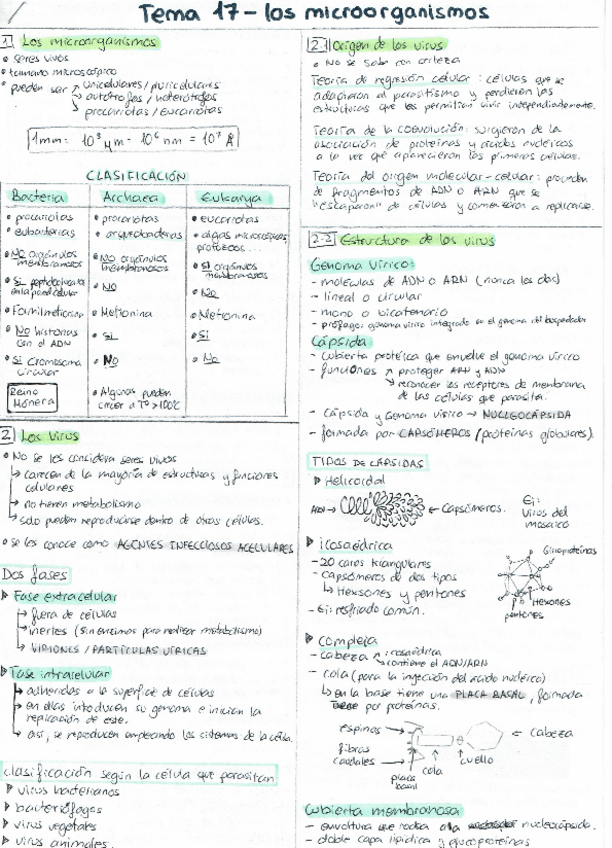 Tema 17 - los microorganismos
1 Los microorganismos
• seres vivos
• tamaño microscópico
• pueden ser → unicelulares / pluricelulares
→ autótrofos / heterótrofos
→ procariotas / eucariotas
1mm = 10³ µm = 10⁶ nm = 10⁷ Å
CLASIFICACIÓN
Bacteria
• procariotas
• eubacterias
• NO orgánulos membranosos
• Sí peptidoglucano en la pared celular
• Formilmetionina
• No histonas con el ADN
• Sí cromosoma circular
Reino Mónera
Archaea
• procariotas
• arqueobacterias
• NO orgánulos membranosos
• NO
• Metionina
• Sí
• NO
• Algunas pueden crecer a Tº >100ºC
Eukarya
• eucariotas
• algas microscópicas, protozoos...
• Sí orgánulos membranosos
• No
• Metionina
• Sí
• No
2 Los virus
• No se les considera seres vivos
↳ carecen de la mayoría de estructuras y funciones
celulares
↳ no tienen metabolismo
↳ solo pueden reproducirse dentro de otras células.
• se les conoce como AGENTES INFECCIOSOS ACELULARES
Dos fases
▶ Fase extracelular
↳ fuera de células
↳ inertes (sin enzimas para realizar metabolismo)
↳ VIRIONES / PARTÍCULAS VÍRICAS
▶ Fase intracelular
↳ adheridas a la superfic de células
↳ en ellas introducen su genoma e inician la
replicación de este.
↳ así, se reproducen empleando los sistemas de la célula.
Clasificación según la célula que parasitan:
▶ virus bacterianos
▶ bacteriófagos
▶ virus vegetales
▶ virus animales.
2.1 Origen de los virus
• No se sabe con certeza
Teoría de regresión celular: células que se
adaptaron al parasitismo y perdieron las
estructuras que les permitían vivir independientemente.
Teoría de la coevolución: surgieron de la
asociación de proteínas y ácidos nucleicos
a la vez que aparecieron las primeras células.
Teoría del origen molecular-celular: proceden
de fragmentos de ADN o ARN que se
"escaparon" de células y comenzaron a replicarse.
2.2 Estructura de los virus
Genoma vírico:
- moléculas de ADN o ARN (nunca los dos)
- lineal o circular
- mono o bicatenario
- prófago: genoma vírico integrado en el genoma del hospedador
Cápsida
- cubierta proteica que envuelve el genoma vírico
- funciones → proteger ARN y ADN
→ reconocer los receptores de membrana
de las células que parasita.
- cápsida y genoma vírico → NUCLEOCÁPSIDA
- formada por CAPSÓMEROS (proteínas globulares).
TIPOS DE CÁPSIDAS
▶ Helicoidal
ARN → ← Capsómeros.
Ej:
Virus del
mosaico
▶ icosaédrica
- 20 caras triangulares
- Capsómeros de dos tipos
↳ Hexones y pentones
- Ej: resfriado común.
Glucoproteínas
Hexones
pentones
▶ Compleja
- cabeza → icosaédrica
→ contiene el ADN/ARN
- cola (para la inyección del ácido nucleico)
↳ en la base tiene una PLACA BASAL, formada
por proteínas.
espinas
fibras
caudales
placa
basal
cola
cuello
← cabeza
Cubierta membranosa
- envoltura que rodea a la nucleocápsida.
- doble capa lipídica y glucoproteínas